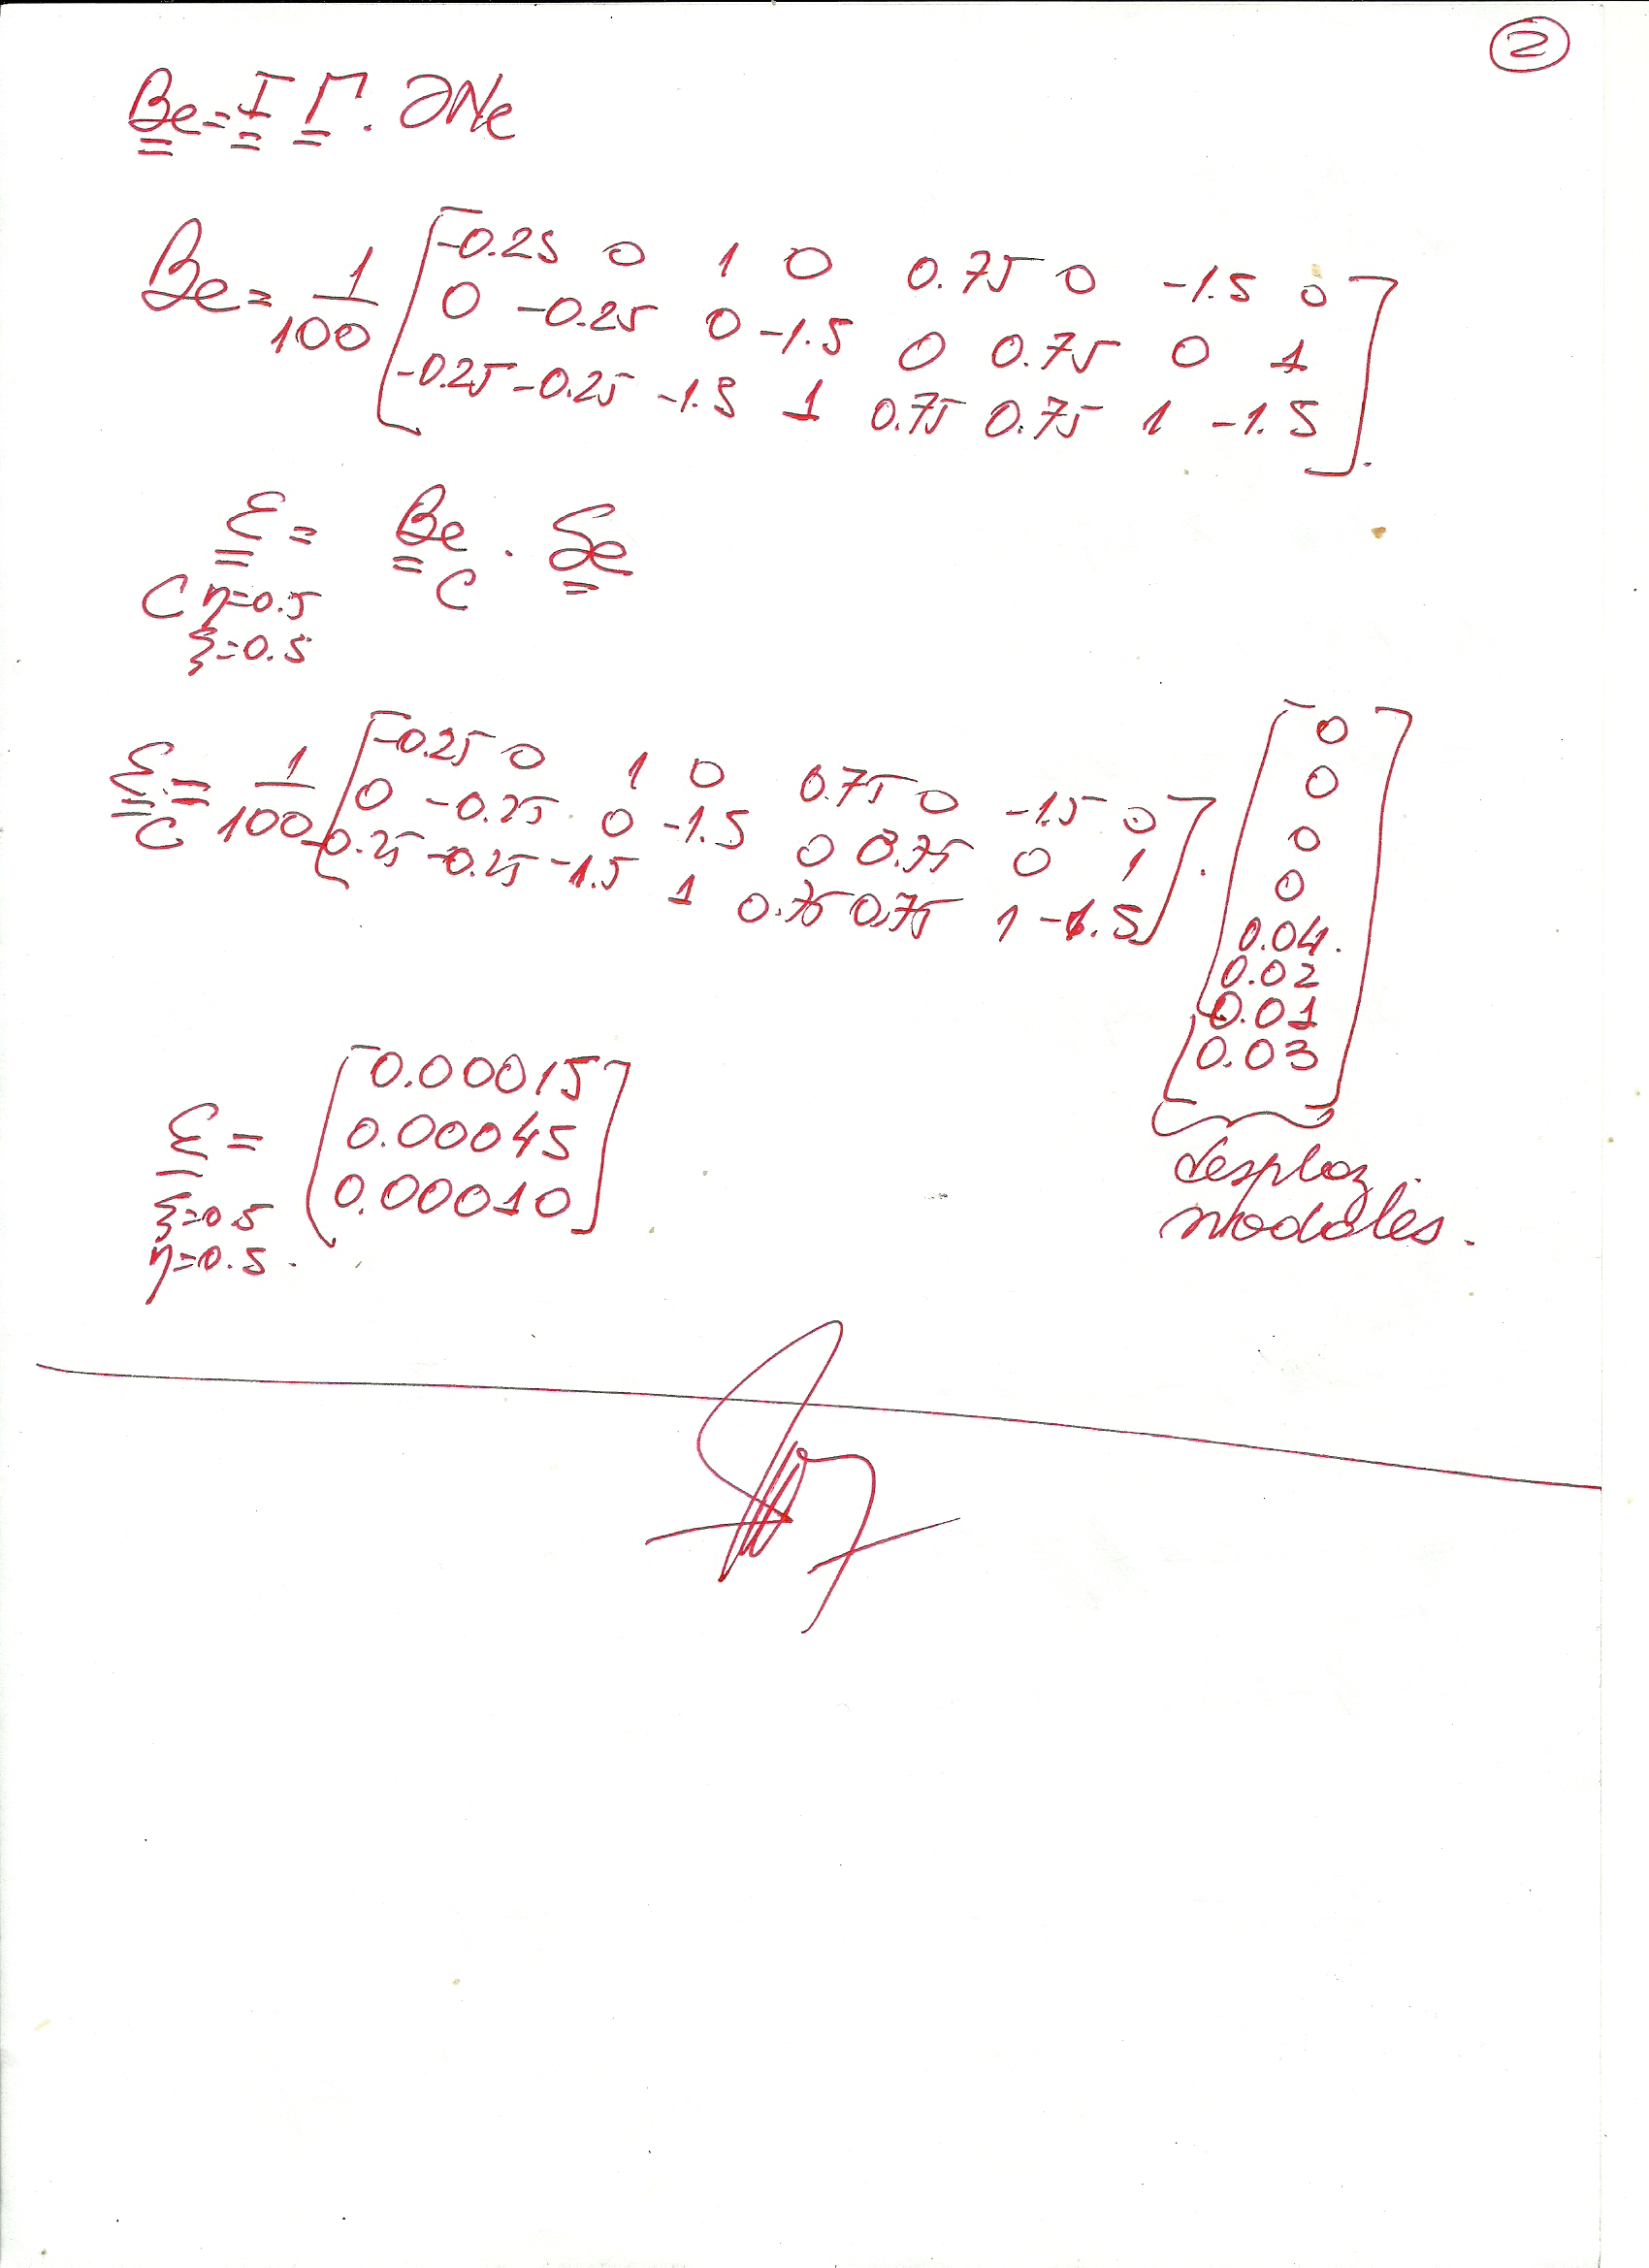 2
Be = I Γ . ∂Ne
Be = 1/100 [ -0.25 0 1 0 0.75 0 -1.5 0
0 -0.25 0 -1.5 0 0.75 0 1
-0.25 -0.25 -1.5 1 0.75 0.75 1 -1.5 ] .
ε = Be . δe
C η=0.5 C
ξ=0.5
ε = 1/100 [ -0.25 0 1 0 0.75 0 -1.5 0 ] . [ 0
C 0 -0.25 0 -1.5 0 0.75 0 1 0
-0.25 -0.25 -1.5 1 0.75 0.75 1 -1.5 0
0
0.04.
0.02
0.01
0.03 ]
desplaz.
nodales.
ε = [ 0.00015
0.00045
0.00010 ]
ξ=0.5
η=0.5.